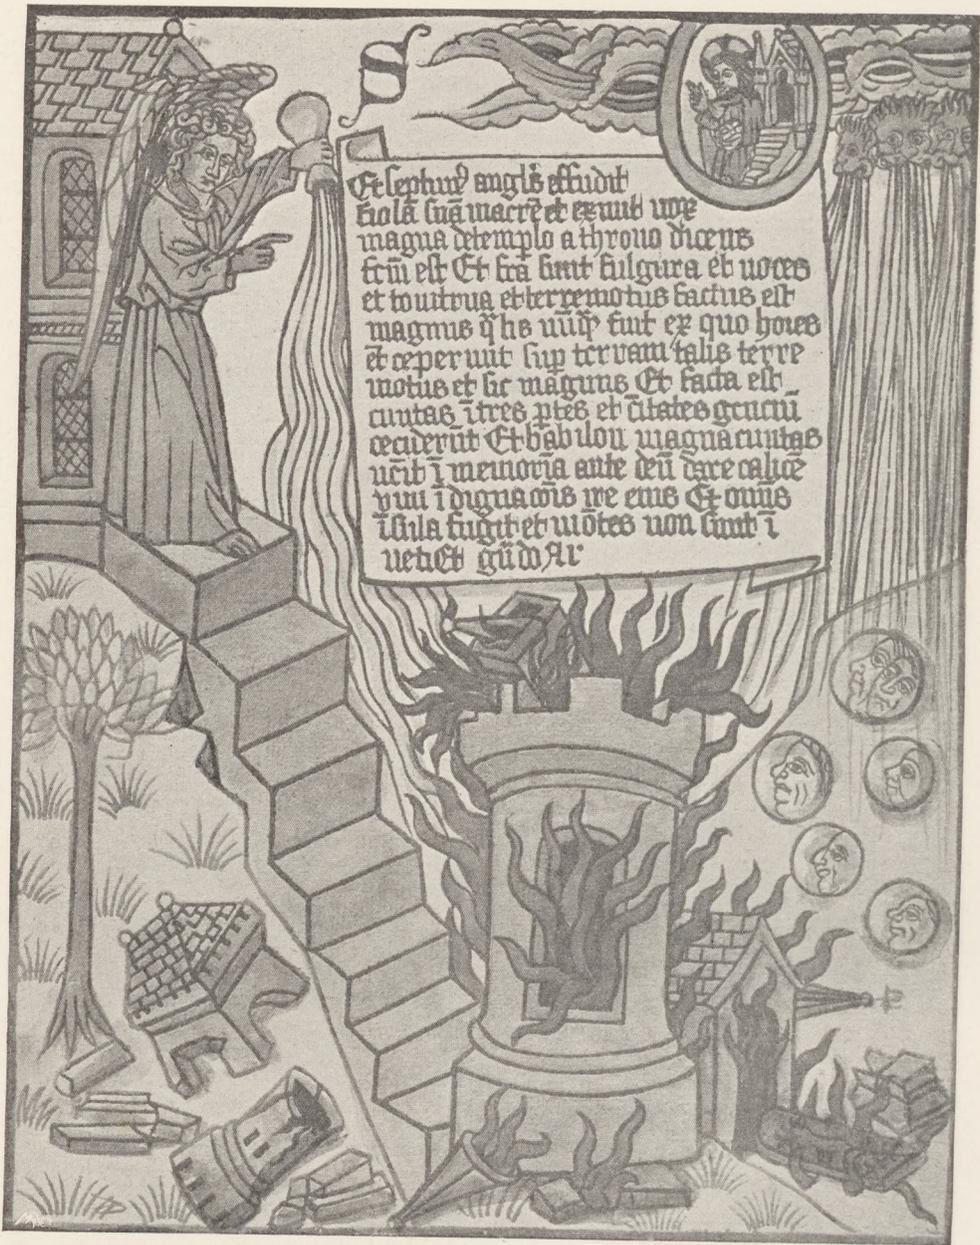 S
Et septimꝰ anglꝰ effudit
fiolā suā in acrē et exiuit uox
magna de templo a throno dicens
fctm̄ est Et fcā sunt fulgura et uoces
et tonitrua et terremotus factus est
magnus q̄lis nūq̄ꝫ fuit ex quo hoīes
et ceperunt sup terram talis terre
motus et sic magnus Et facta est
ciuitas ī tres ꝑtes et ciūtates gentiū
ceciderūt Et babilon magna ciuitas
uēit ī memoria ante deū dare calicē
vini īdignac̄oīs ire eius Et om̄is
īsula fugit et mōtes non sunt ī
uēti Et